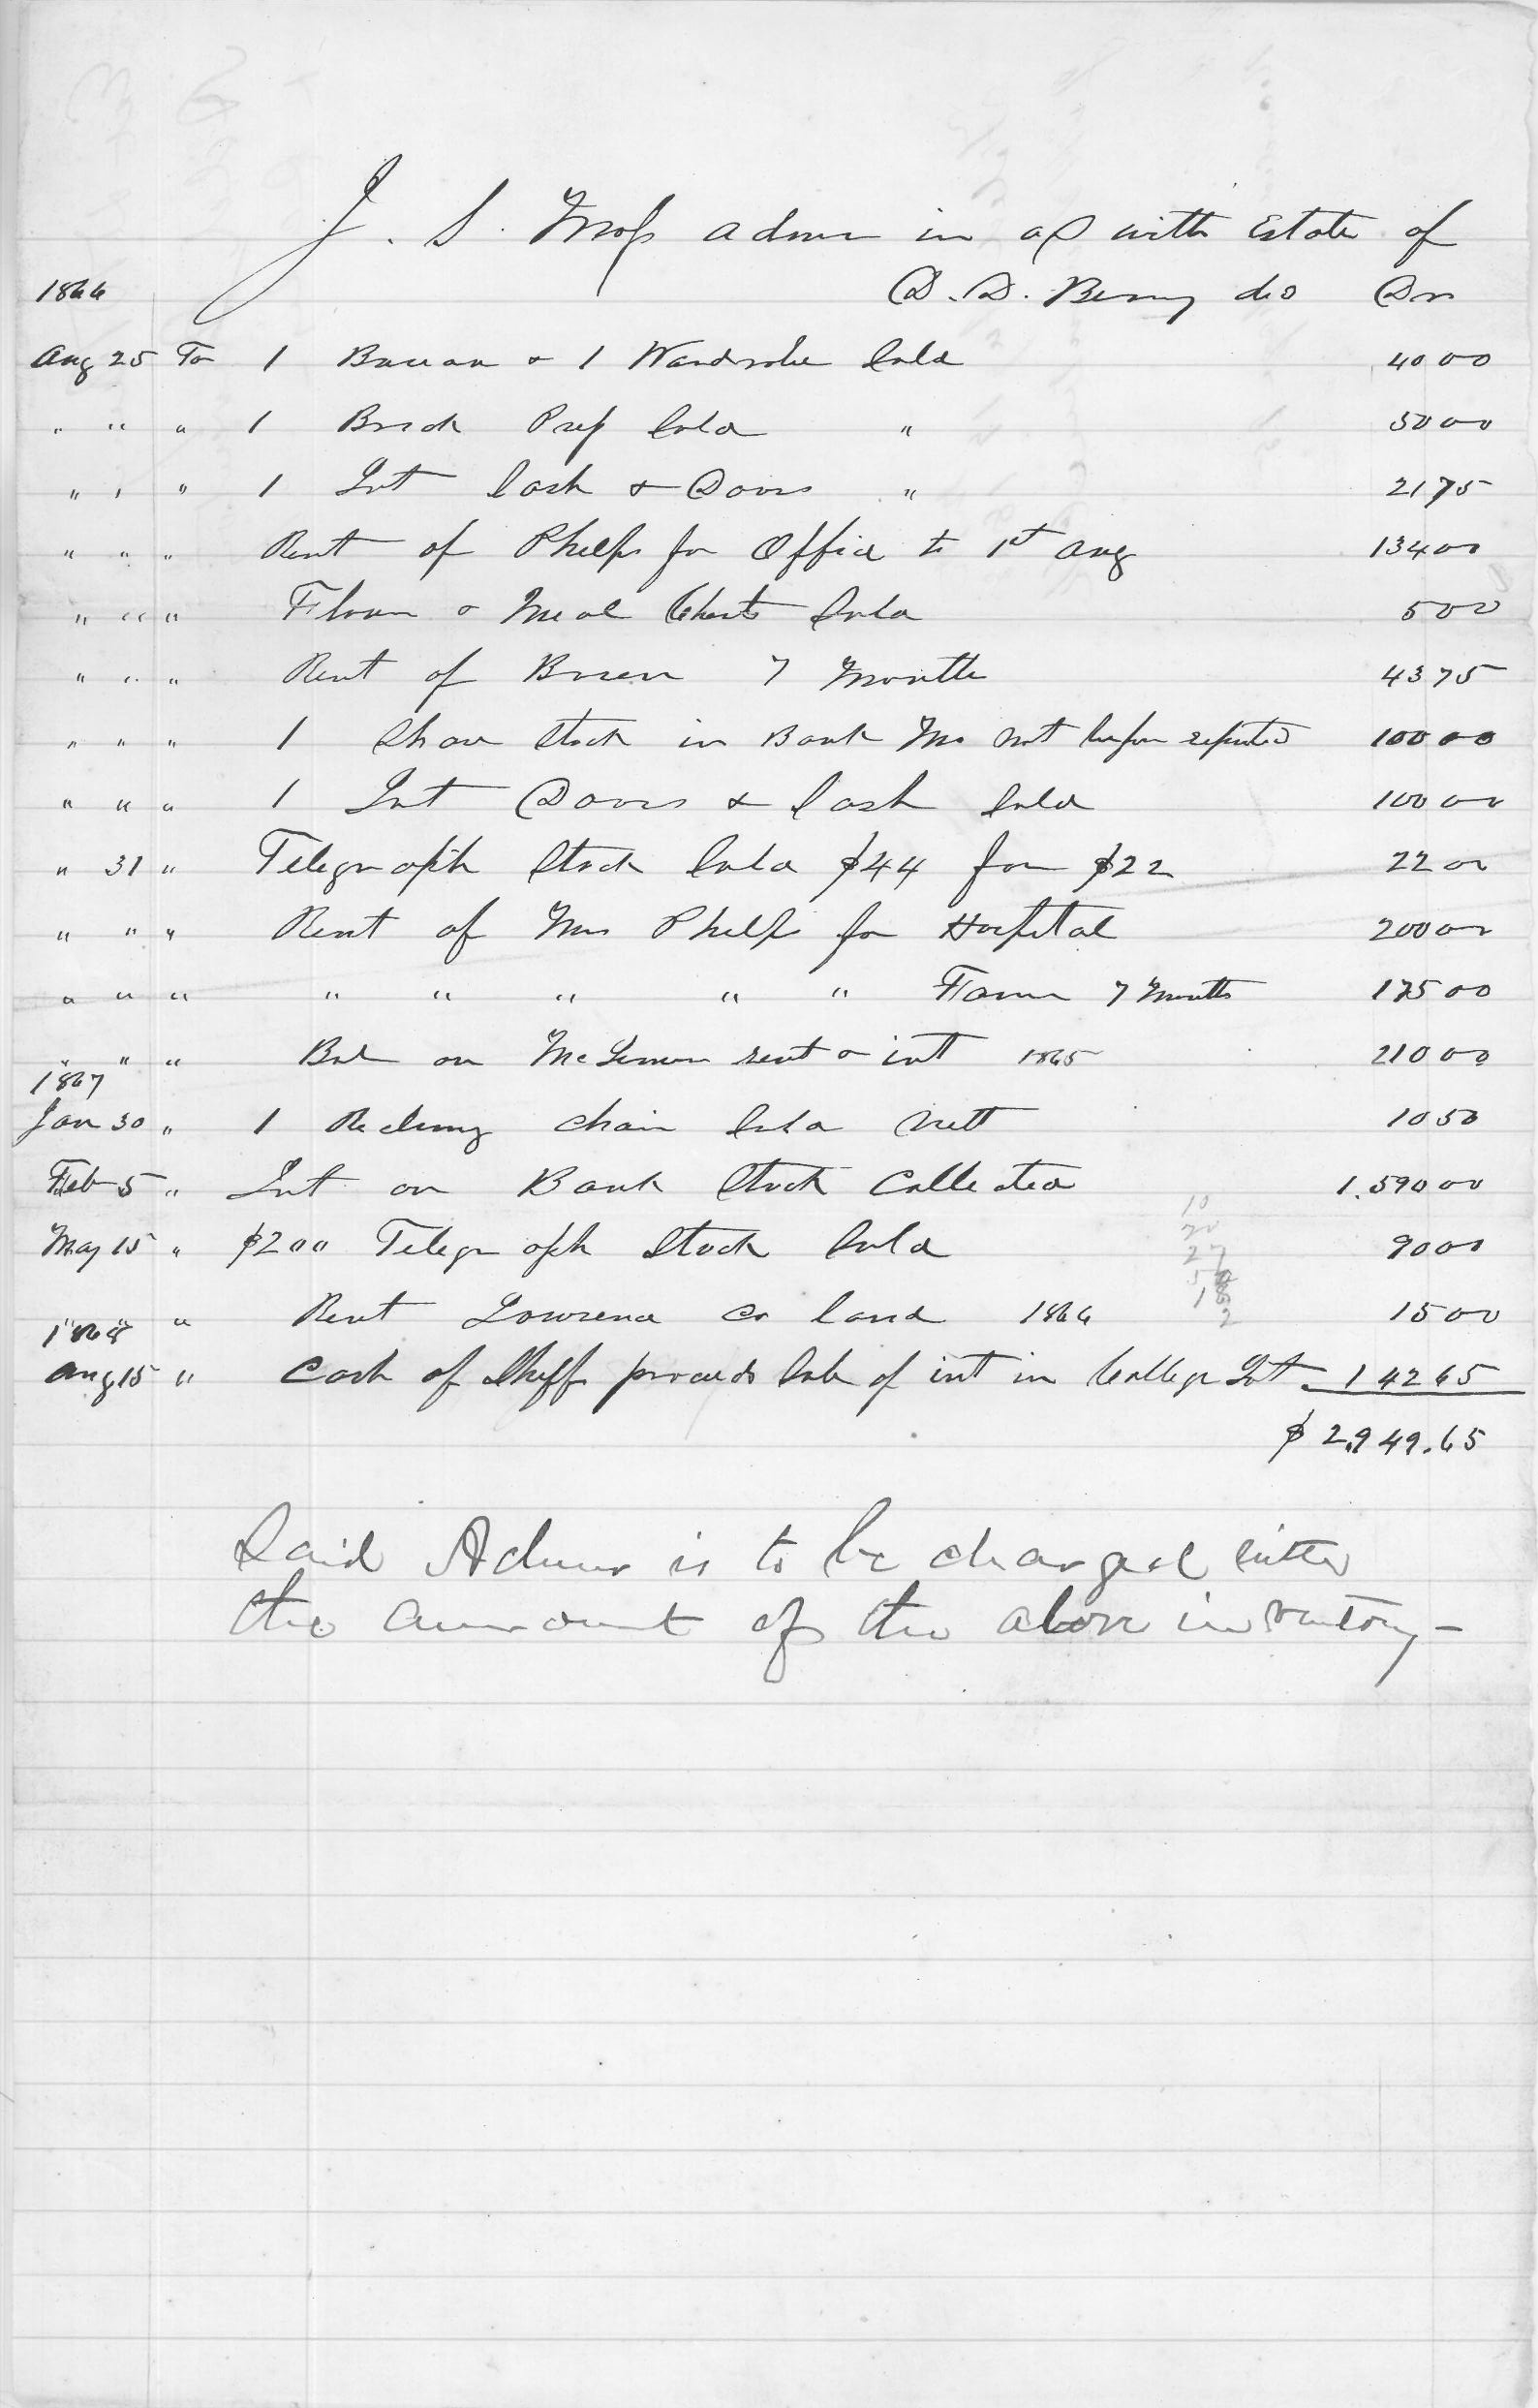 J. S. Moss Admr in a/c with Estate of
1866 D. D. Berry des Dr
Aug 25 To 1 Bureau & 1 Wardrobe Sold 40 00
" " " 1 Brick Press Sold " 50 00
" " " 1 Lot Sash & Doors " 21 75
" " " Rent of Phelps for Office to 1st Aug 134 00
" " " Flour & Meal Chests Sold 5 00
" " " Rent of 7 Months 43 75
" " " 1 Share Stock in Bank Mo not before reported 100 00
" " " 1 Lot Doors & Sash Sold 100 00
" 31 " Telegraph Stock Sold $44 for $22 22 00
" " " Rent of Mrs Phelps for Hospital 200 00
" " " " " " " " Farm 7 Months 175 00
" " " Bal on rent & int 1865 210 00
1867
Jan 30 " 1 Reclining chair Sold nett 10 50
Feb 5 " Int on Bank Stock Collected 1.590 00
May 15 " $200 Telegraph Stock Sold 90 00
" " " Rent Lawrence Co land 1866 15 00
1868
Aug 15 " Cash of Sheff proceeds Sale of int in College Lot 142 65
$ 2,949.65
10
20
27
Said Admr is to be charged with
the amount of the above inventory –